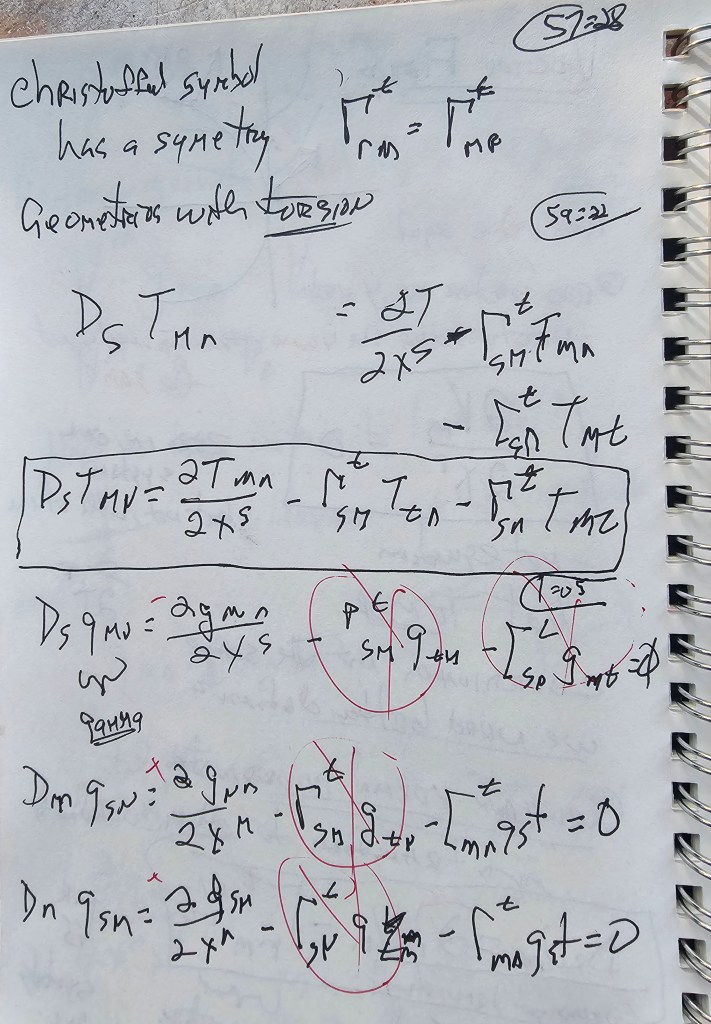 57=28
Christoffel symbol
has a symetry Γ^t_rm = Γ^t_mr
Geometries with torsion 59=22
D_s T_mn = ∂T/∂x^s - Γ^t_sm T_mn
- Γ^t_sn T_mt
D_s T_mn = ∂T_mn/∂x^s - Γ^t_sm T_tn - Γ^t_sn T_mt
1=05
D_s g_mn = ∂g_mn/∂x^s - Γ^t_sm g_tn - Γ^t_sn g_mt = 0
D_m g_sn = ∂g_nn/∂x^m - Γ^t_sm g_tn - Γ^t_mn g_st = 0
D_n g_sm = ∂g_sm/∂x^n - Γ^t_sn g_tm - Γ^t_mn g_st = 0